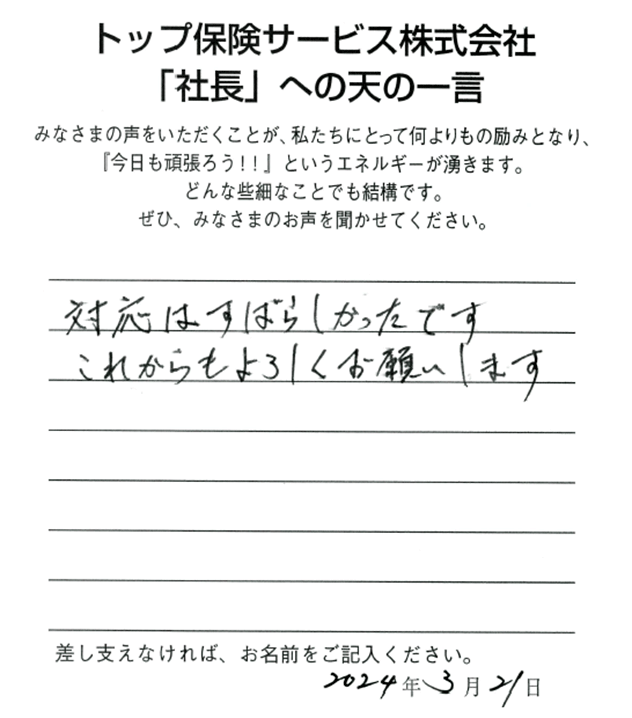 トップ保険サービス株式会社
「社長」への天の一言
みなさまの声をいただくことが、私たちにとって何よりもの励みとなり、
『今日も頑張ろう！！』というエネルギーが湧きます。
どんな些細なことでも結構です。
ぜひ、みなさまのお声を聞かせてください。
対応はすばらしかったです
これからもよろしくお願いします
差し支えなければ、お名前をご記入ください。
2024年3月21日